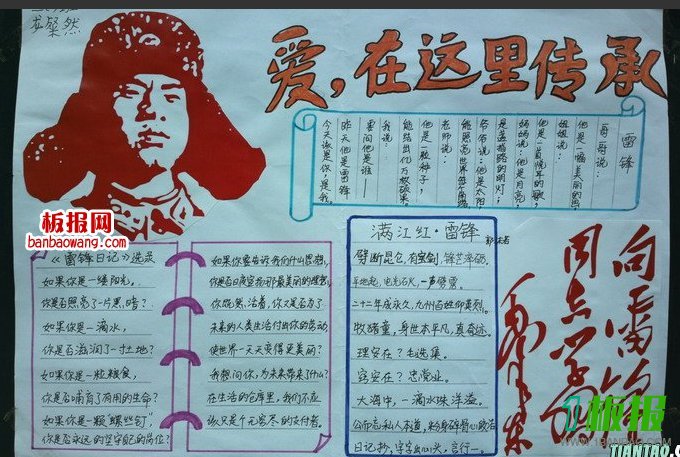 爱,在这里传承
雷锋
哥哥说:
他是一幅美丽的画
姐姐说:
他是一首悦耳的歌,
妈妈说:他是月亮,
是盏指路的明灯;
爷爷说:他是太阳,
能照亮世界每个角落
老师说:
他是一粒种子,
能结出亿万颗硕果。
我说:
要问他是谁——
昨天他是雷锋
今天该是你,是我。
板报网
banbaowang.com
《雷锋日记》选录
如果你是一缕阳光。
你是否照亮了一片黑暗?
如果你是一滴水,
你是否滋润了一寸土地?
如果你是一粒粮食
你是否哺育了有用的生命?
如果你是一颗"螺丝钉"
你是否永远的坚守你的岗位?
如果你要告诉我们什么思想,
你是否日夜宣扬那最美丽的理想?
你既然活着,你又是否为了
未来的人类生活付出你的劳动,
使世界一天天变得更美丽?
我想问你,为未来带来了什么?
在生活的仓库里,我们不应
该只是个无穷尽的支付者。
满江红·雷锋
郭沫若
劈断昆仑,有宝剑,锋芒淬砺。
平地起,电光石火,一声霹雳。
二十二年成永久,九州百姓仰英烈。
牧猪童,身世本平凡,真奇迹。
理安在?毛选集。
实安在?忠党业。
大海中,一滴水珠洋溢。
日记抄,字字出心头,言行一。
向雷锋
同志学习
毛泽东
板报